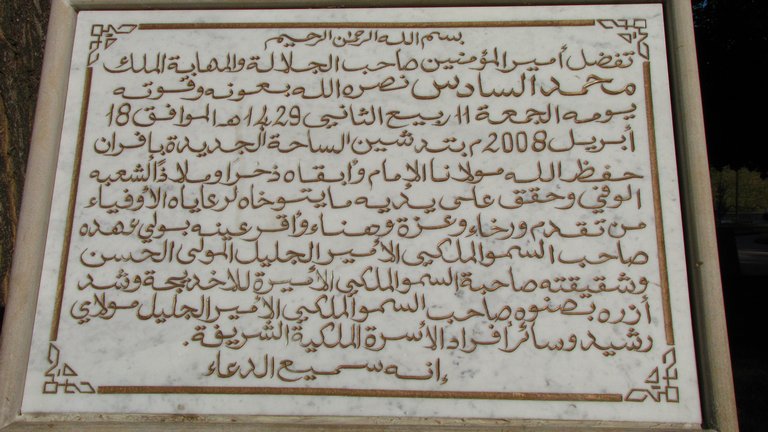 بسم الله الرحمن الرحيم
تفضل أمير المؤمنين صاحب الجلالة والمهابة الملك
محمد السادس نصره الله بعونه وقوته
يومه الجمعة 11 ربيع الثاني 1429هـ الموافق 18
أبريل 2008م بتدشين الساحة الجديدة بإفران
حفظ الله مولانا الإمام وأبقاه ذخرا وملاذا لشعبه
الوفي وحقق على يديه ما يتوخاه لرعاياه الأوفياء
من تقدم ورخاء وعزة وهناء وأقر عينه بولي عهده
صاحب السمو الملكي الأمير الجليل المولى الحسن
وشقيقته صاحبة السمو الملكي الأميرة للاخديجة وشد
أزره بصنوه صاحب السمو الملكي الأمير الجليل مولاي
رشيد وسائر أفراد الأسرة الملكية الشريفة.
إنه سميع الدعاء